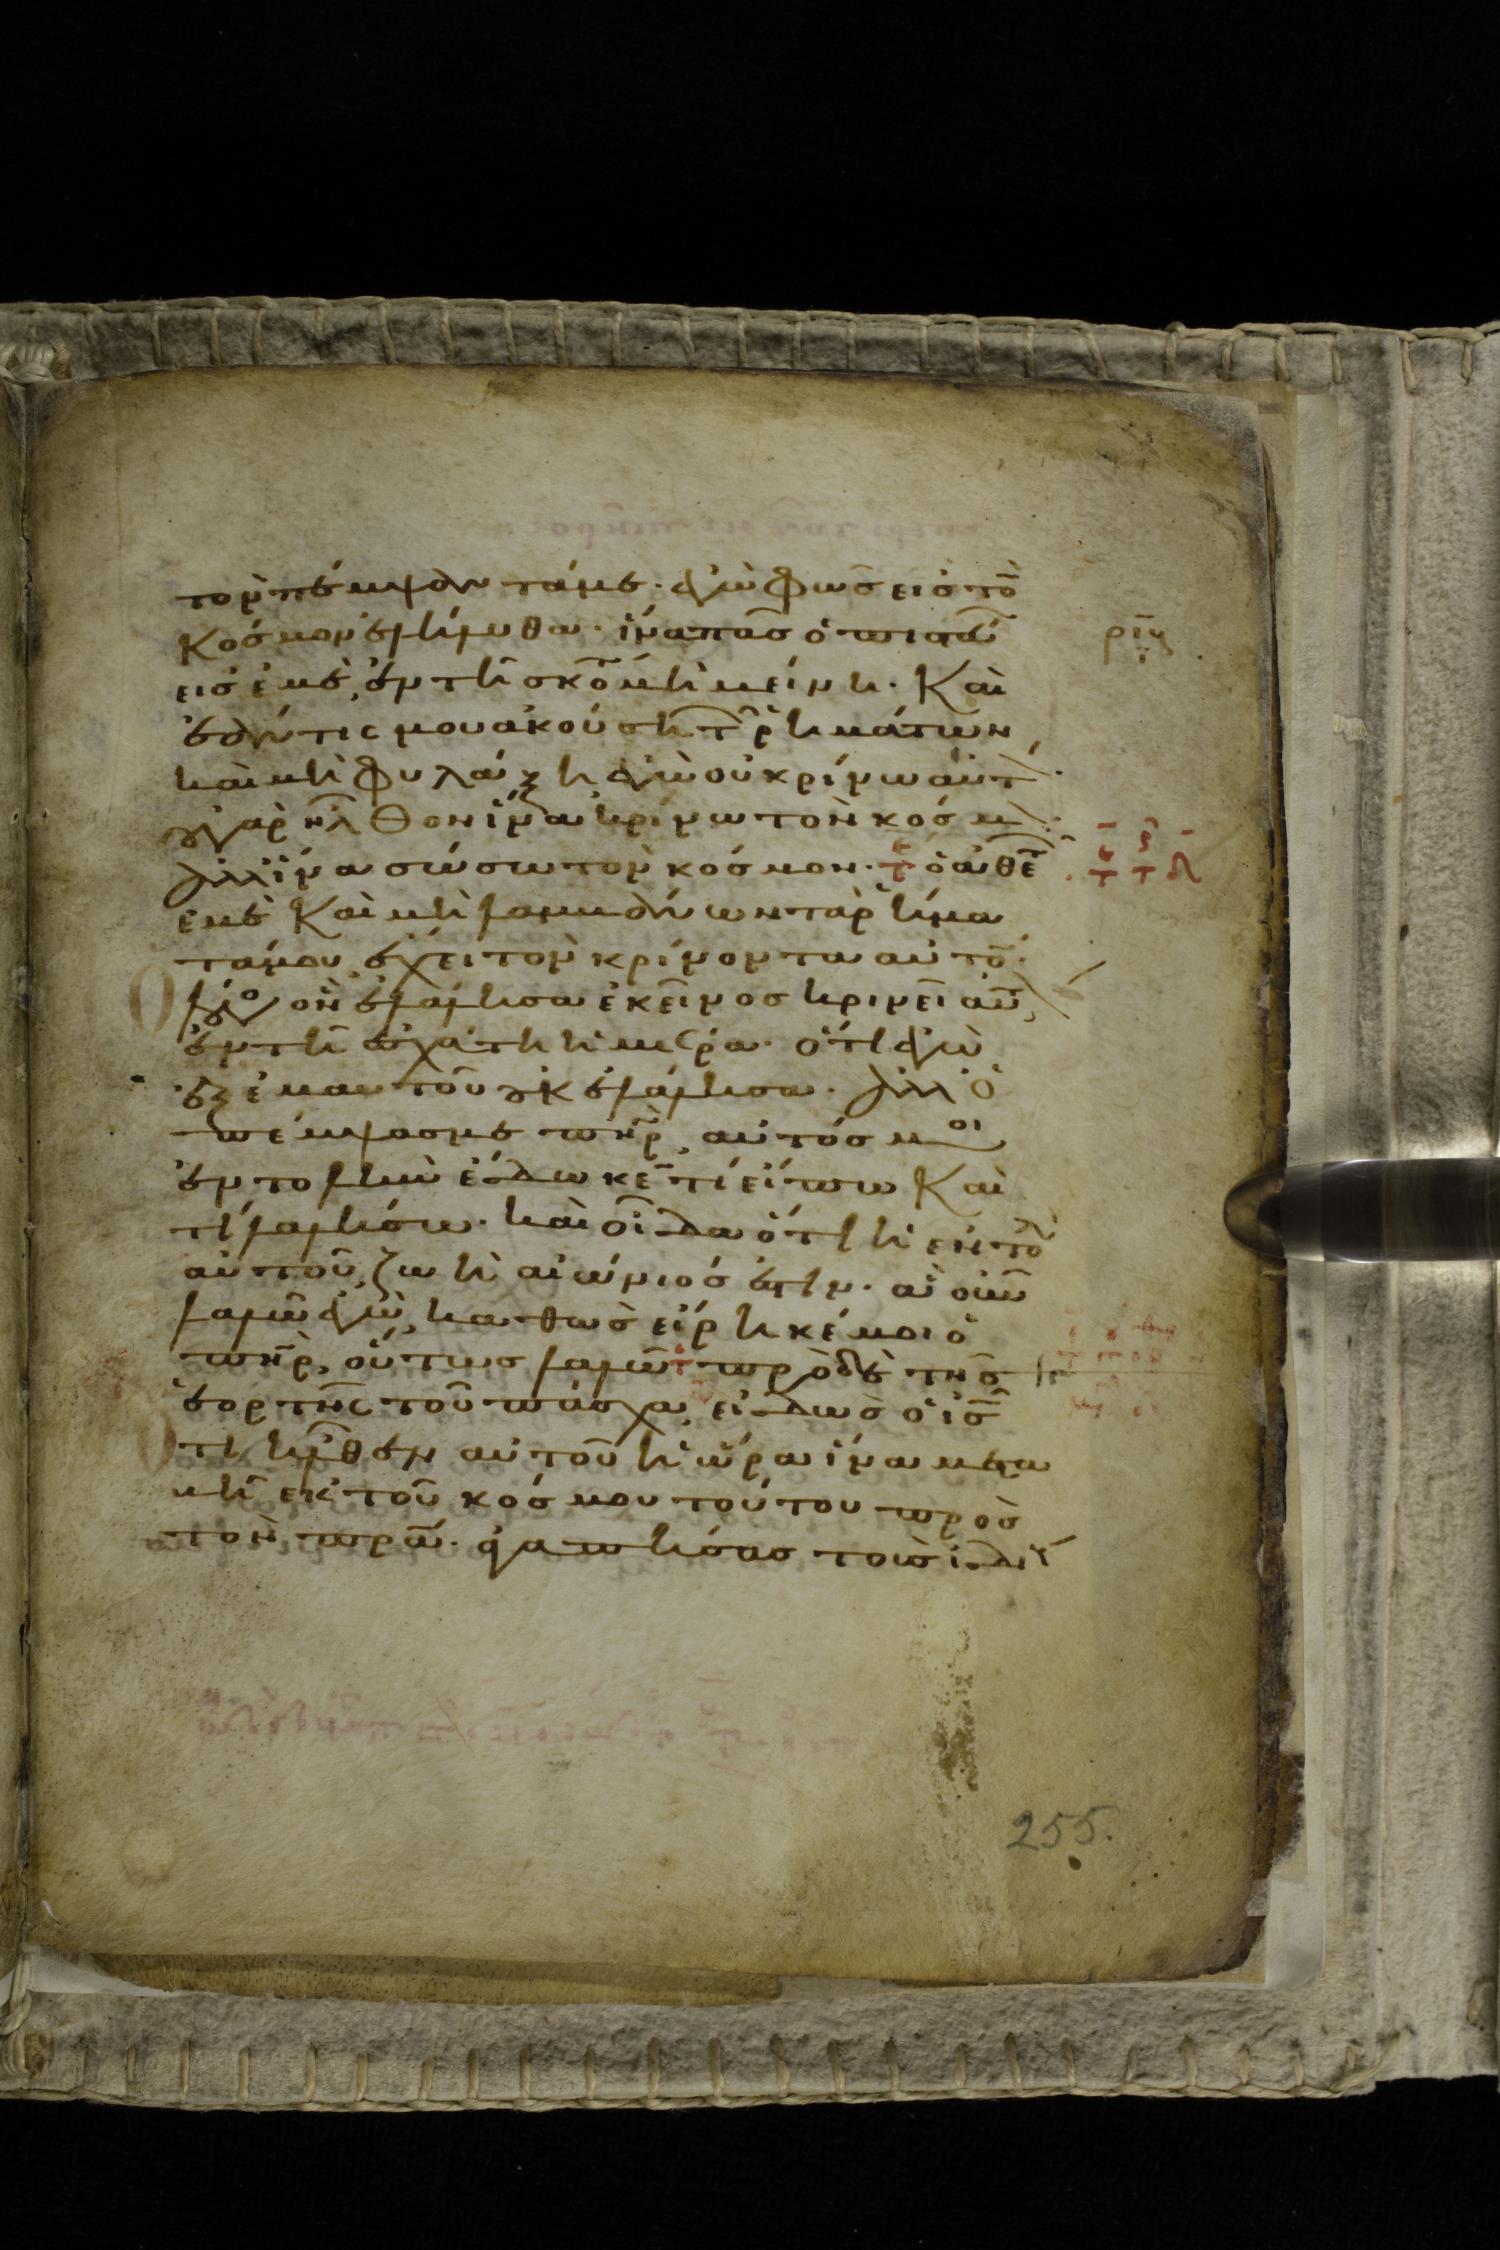 τον πέμψαντά με· ἐγὼ φῶς εἰς τὸ
κόσμον ἐλήλυθα· ἵνα πᾶς ὁ πιστεύ
εἰς ἐμὲ, ἐν τῆ σκο μὴ μείνη· Καὶ
ἐάν τις μου ἀκούση τ ῥημάτων
καὶ μὴ φυλάξη ἐγὼ οὐ κρίνω αὐτ·
γὰρ ἦλθον ἵνα κρίνω τὸν κόσμ·
ἀλλ ἵνα σώσω τὸν κόσμον· ὁ ἀθε
ἐμὲ Καὶ μὴ λαμβάνων τὰ ῥήμα
τά μου, ἔχει τὸν κρίνοντα αὐτὸ·
λόγο ὃν ἐλάλησα ἐκεῖνος κρινεῖ αὐ
ἐν τῆ ἐσχάτη ἡμέρα· ὅτι ἐγὼ
ἐξ ἐμαυτοῦ οὐκ ἐλάλησα· ἀλλ ὁ
πέμψας με πηρ, αὐτός μοι
ἐντολὴν ἔδωκε τί εἴπω Καὶ
τί λαλήσω· καὶ οἶδα ὅτι ἡ ἐντολ
αὐτοῦ, ζωὴ αἰώνιός ἐστιν· ἃ οὖν
λαλῶ ἐγὼ, καθὼς εἴρηκέ μοι ὁ
πηρ, οὕτως λαλῶ πρὸ δὲ τῆς
ἑορτῆς τοῦ πάσχα, εἰδὼς ὁ ις
ὅτι ἐλήλυθεν αὐτοῦ ἡ ὥρα ἵνα μετα
βῆ ἐκ τοῦ κόσμου τούτου πρὸς
τὸν πρα· ἀγαπήσας τοὺς ἰδί
255.